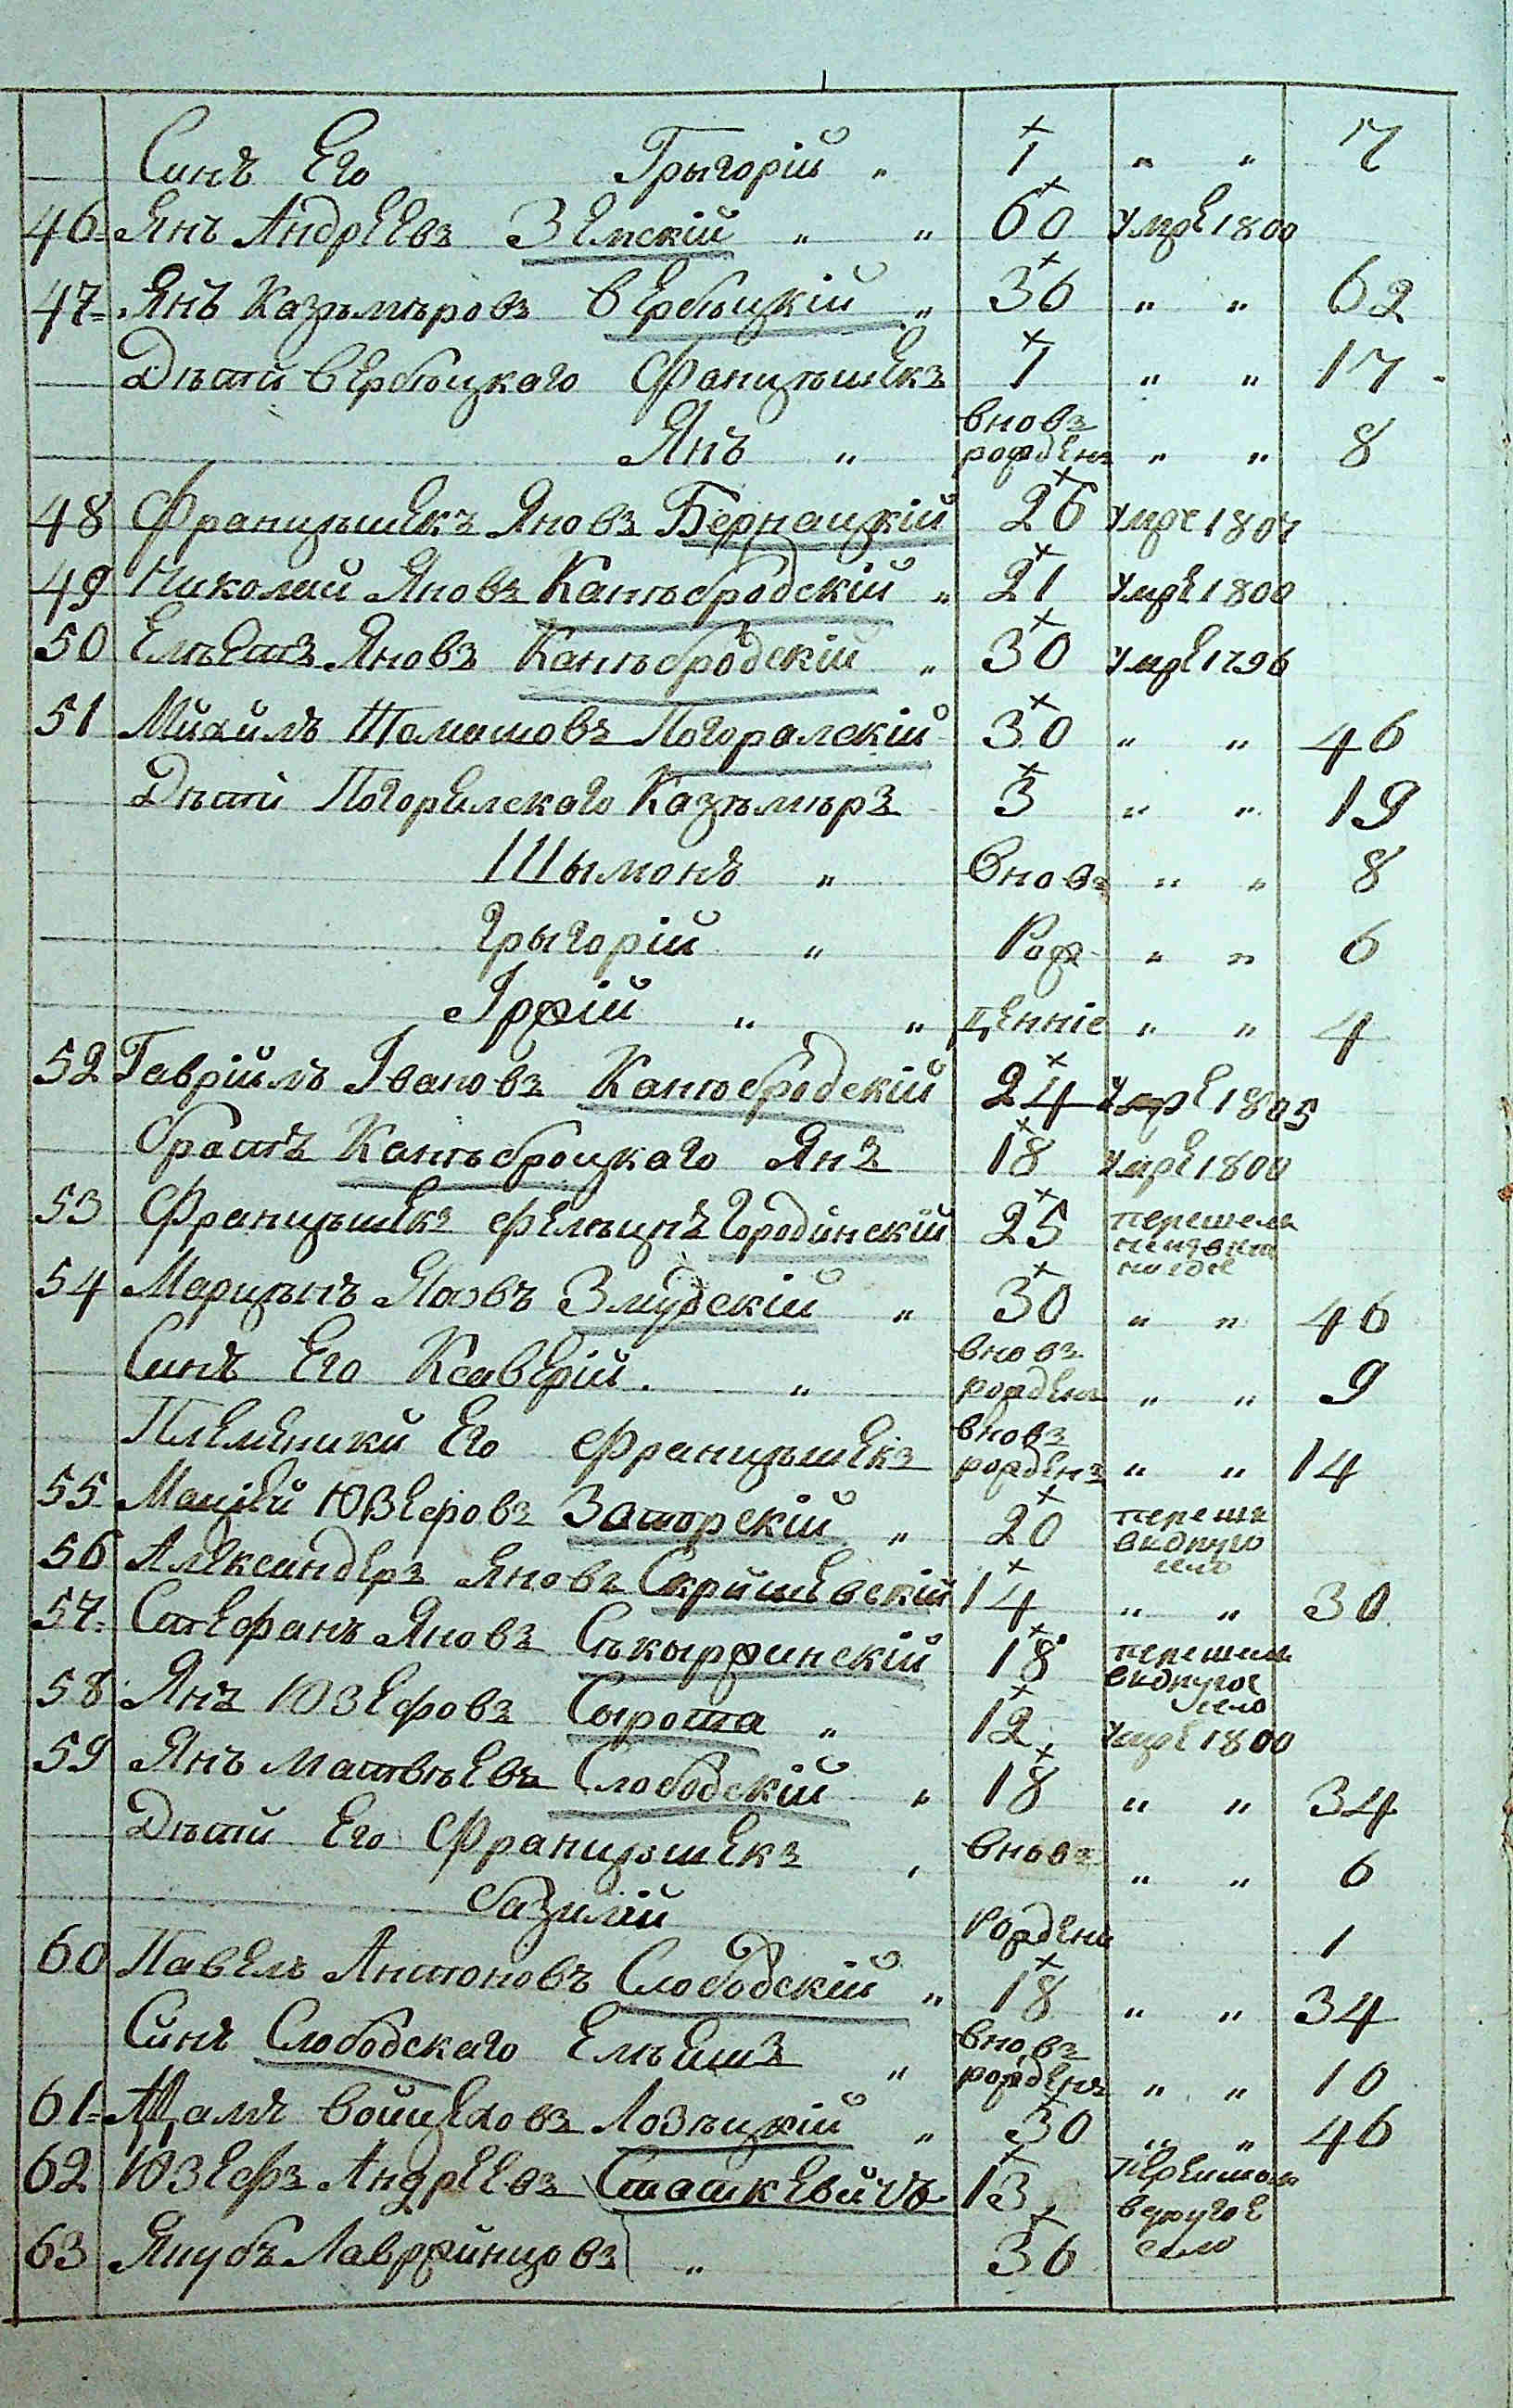 Синъ Его Грыгорій „ 1 „ „ 7
46 Янъ Андреевъ Земскій „ „ 60 умре 1800
47 Янъ Казѣмѣровъ Вербѣцкій „ 36 „ „ 62
Дѣти Вербѣцкаго Фанцѣшекъ 1 „ „ 17
Янъ „ вновъ рожденъ „ „ 8
48 Францѣшекъ Яновъ Бернацкій 26 умре 1807
49 Николай Яновъ Канѣбродскій „ 21 умре 1800
50 Яновъ Канѣбродскій „ 30 умре 1796
51 Михаилъ Томашовъ Погоралскій 30 „ „ 46
Дѣти Погорелского Казѣмѣръ 3 „ „ 19
Шымонъ „ вновъ „ „ 8
Грыгорій „ Рож „ „ 6
Іржій „ „ денніе „ „ 4
52 Гавріилъ Івановъ Канѣбродскій 24 умре 1805
братъ Канѣброцкаго Янъ 18 умре 1800
53 Францѣшекъ Фелѣцнъ Городинскій 25 перешелъ
54 Марцѣнъ Змудскій „ 30 „ „ 46
Синъ Его Ксаверій „ вновъ рожденъ „ „ 9
Племеники Его Францѣшекъ вновъ рожденъ „ „ 14
55 Мацѣй Юзефовъ Заторскій „ 20 перешл видруго село
56 Александеръ Яновъ Скришевскій 14 „ „ 30
57 Стефанъ Яновъ Сѣкыржинскій 18 перешлъ видругое село
58 Янъ Юзефовъ Сырота „ 12 умре 1800
59 Янъ Матвѣевъ Слободскій „ 18 „ „ 34
Дѣти Его Францѣшекъ вновъ „ „ 6
Базилій Рордени 1
60 Павелъ Антоновъ Слободскій „ 18 „ „ 34
Синъ Слободскаго „ вновъ рожденъ „ „ 10
61 Адамъ Войцеховъ Лозѣцкій „ 30 „ „ 46
62 Юзефъ Андреевъ Сташкевичъ 13 перешол вдругое село
63 Якубъ Лавржинцовъ „ 36